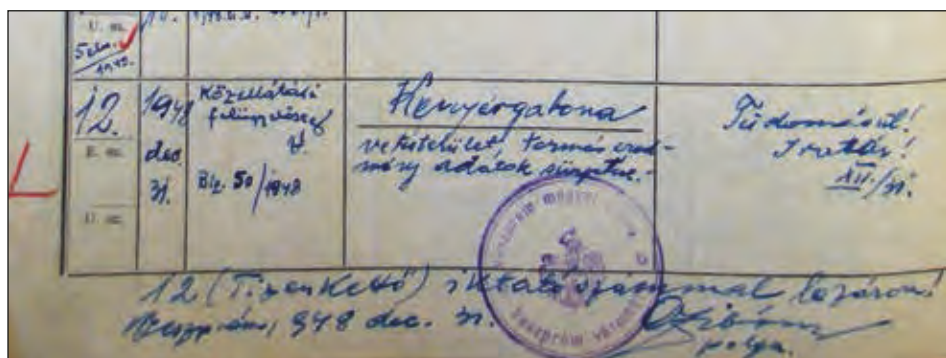 U. sz.
5 eln.
1948.
12.
E. sz.
U. sz.
1948
dec.
31.
Közellátási
felügyelőség
V.
Biz. 50/1948
Kenyérgabona
vetésterület, termés ered-
mény adatok sürgetve.-
Tudomásul!
Irattár!
XII./31.
12 (Tizenkettő) iktatószámmal lezárom!
Veszprém, 948 dec. 31.
polgm.